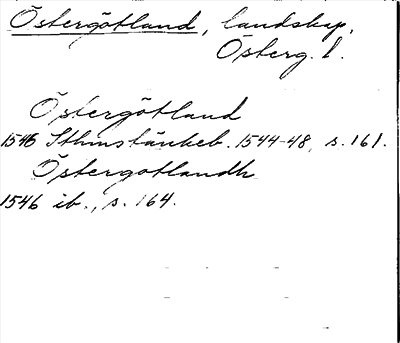 Östergötland, landskap.
Österg. l.
Östergötland
1546 Sthmstänkeb. 1544-48, s. 161.
Östergotlandh
1546 ib., s. 164.